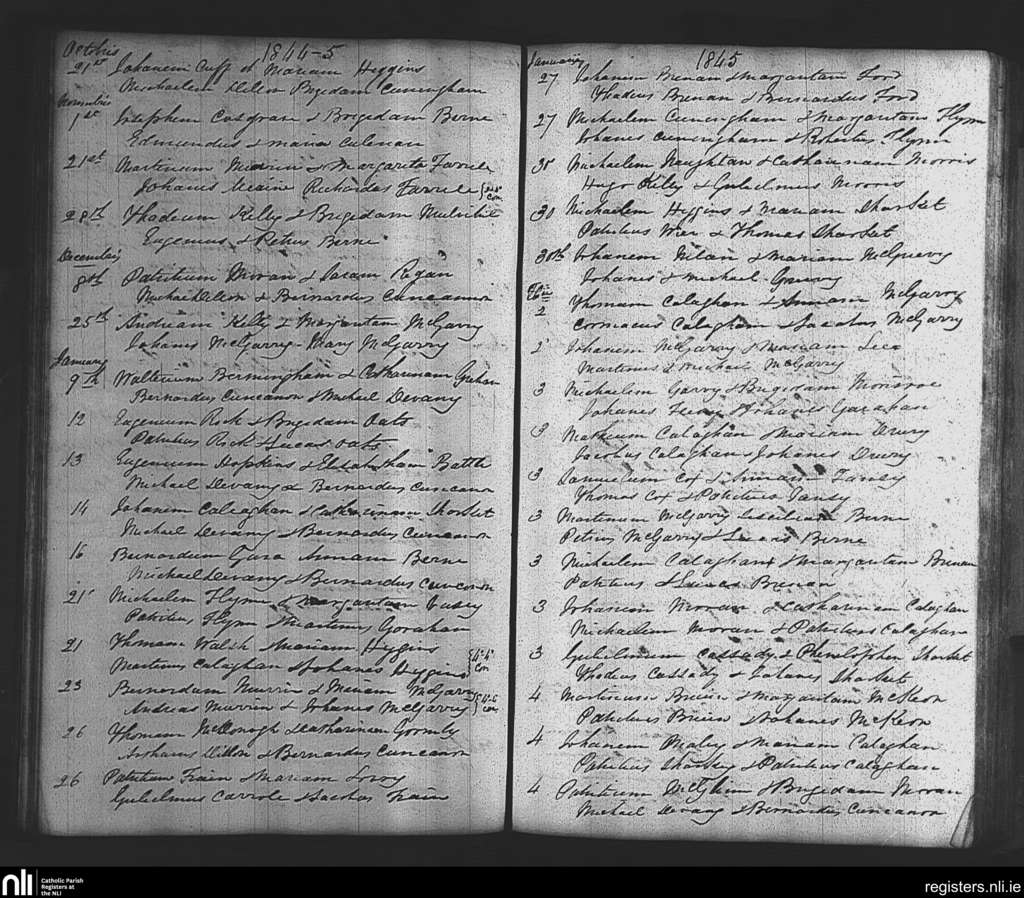 Octobris 1844-5
21st Johanem Cuff et Mariam Higgins
Michaelem Dillon Brgedam Cuningham
Novembris
1st Josephem Cosgran & Brigedam Berne
Edmundus & Maria Coleman
21st Martinum & Margareta Farrele
Johanis Richardus Farrele Con
28th Thadeum Kelly & Brigedam
Eugenius & Petrus Berne
Decembris
8th Patritium Moran & Saram Regan
Michael Dillon & Bernardus Cuneannon
25th Andream Kelly & Margaritam McGarry
Johanis McGarry - Mary McGarry
January
9th Walterium Bermingham & Catharinam Graham
Bernardus Cuneanon & Michael Devany
12 Eugenium Rock & Brigedam Oats
Patritius Rock & Lucas Oats
13 Eugenium Hopkins & Battle
Michael Devany & Bernardus Cuneanon
14 Johanem Calaghan & Catharinam Sharket
Michael Devany & Bernardus Cuneanon
16 Bernardum Gara Annam Berne
Michael Devany & Bernardus Cuneanon
21 Michaelem Flynn & Margaritam Casey
Patritius Flynn Martinus Gorahan
21 Thomam Walsh Mariam Higgins
Martinus Calaghan & Johanes Higgins Con
23 Bernardam Murrin & Mariam McGarry
Andreas Murrin & Johanes McGarry Con
26 Thomam McDonogh & Catharinam Gormly
Johanis Dillon & Bernardus Cuneanon
26 Patritium Frain & Mariam
Gulielmus Carrole & Jacobus Frain
January 1845
27 Johanem Brenan & Margaritam Ford
Thadeus Brenan & Bernardus Ford
27 Michaelem Cuningham & Margaritam Flynn
Johanes Cuningham & Robertus Flynn
30 Michaelem Naughtan & Catharinam Morris
Hugo Kiley & Gulielmus Morris
30 Michaelem Higgins & Mariam Sharket
Patritius & Thomas Sharket
30th Johanem & Mariam
Johanes & Michael
2 Thomam Calaghan & Annam McGarry
Cormacus Calaghan & Jacobus McGarry
2 Johanem McGarry & Mariam
Martinus & Michael McGarry
3 Michaelem Garvy & Brigedam Monroe
Johanes & Johanes Garahan
3 Matheum Calaghan & Mariam Drury
Jacobus Calaghan & Johanes Drury
3 Cox & Annam Tansey
Thomas Cox & Patritius Tansey
3 Martinum McGarry Berne
Petrus McGarry & Berne
3 Michaelem Calaghan & Margaritam Brenan
Patritius & Lucas Brenan
3 Johanem Moran & Catharinam Calaghan
Michaelem Moran & Patritius Calaghan
3 Gulielmum Cassady & Sharket
Thadeus Cassady & Johanes Sharket
4 Martinum Brien & Margaritam McKeon
Patritius Brien & Johanes McKeon
4 Johanem Healy & Mariam Calaghan
Patritius Sharkey & Patritius Calaghan
4 Patritium & Brigedam Moran
Michael Devany & Bernardus Cuneanon
nli Catholic Parish
Registers at
the NLI
registers.nli.ie